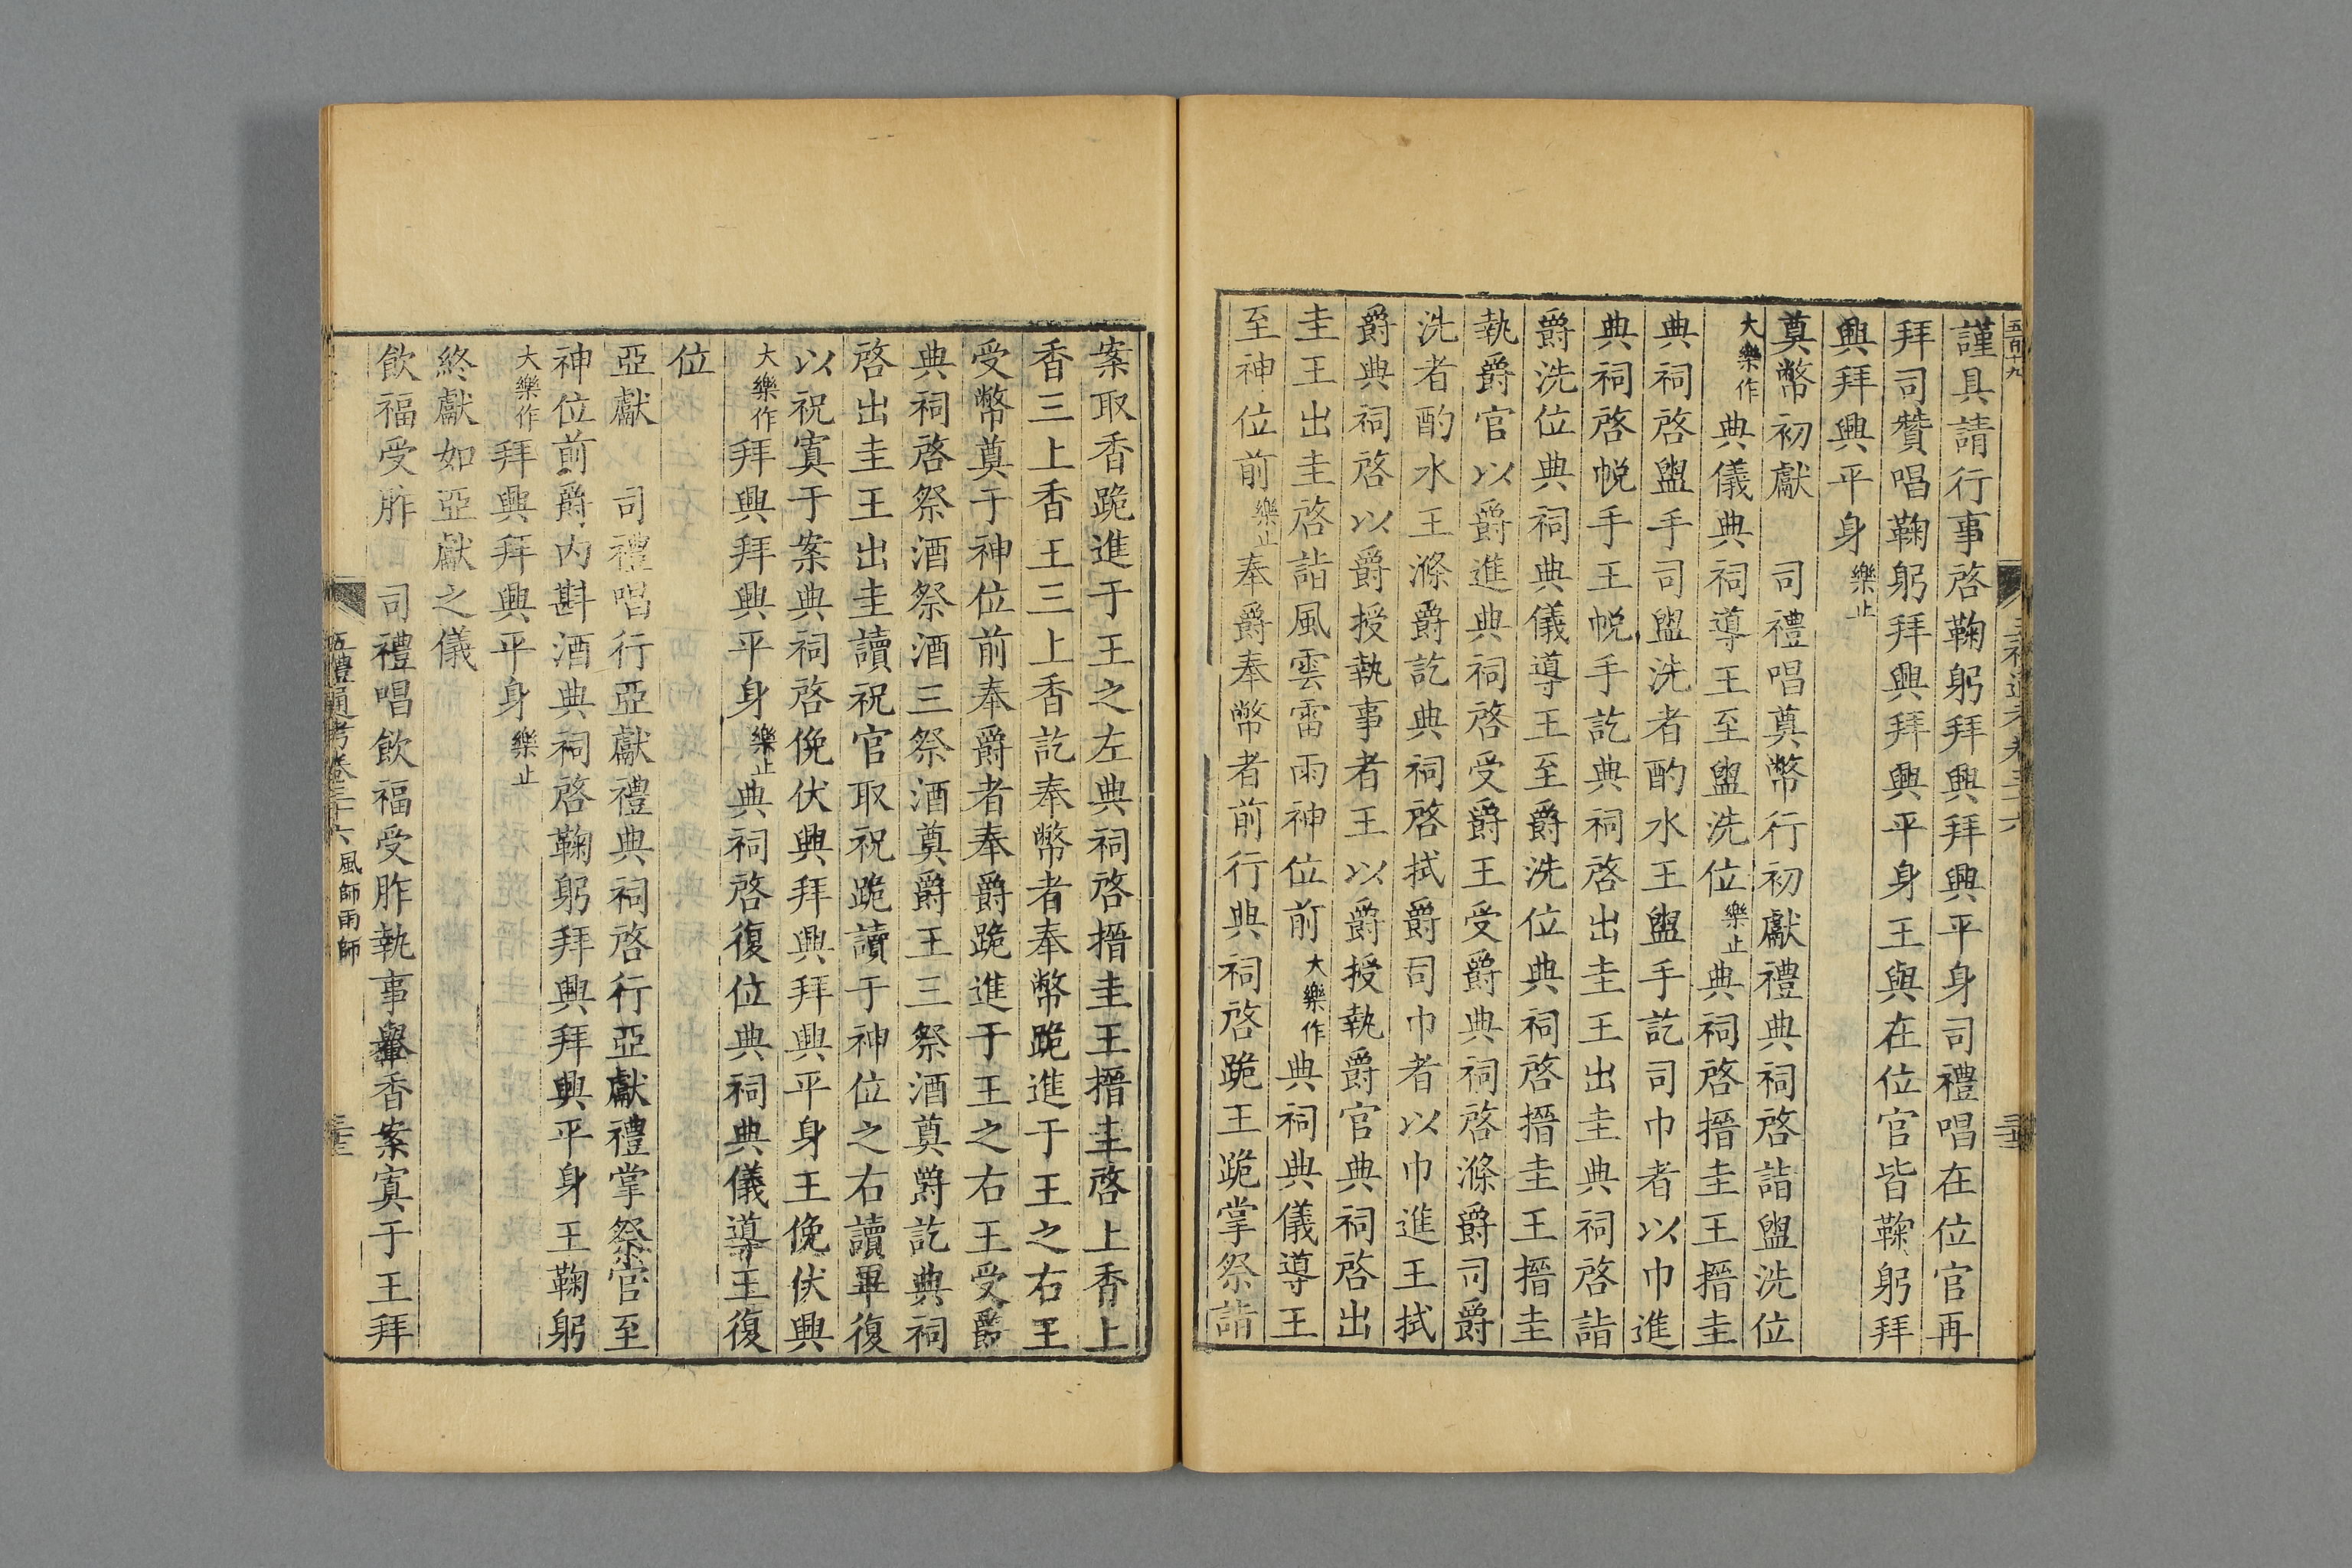 謹具請行事啓鞠躬拜興拜興平身司禮唱在位官再
拜司贊唱鞠躬拜興拜興平身王與在位官皆鞠躬拜
興拜興平身樂止
奠幣初獻 司禮唱奠幣行初獻禮典祠啓詣盥洗位
大樂作典儀典祠導王至盥洗位樂止典祠啓搢圭王搢圭
典祠啓盥手司盥洗者酌水王盥手訖司巾者以巾進
典祠啓帨手王帨手訖典祠啓出圭王出圭典祠啓詣
爵洗位典祠典儀導王至爵洗位典祠啓搢圭王搢圭
執爵官以爵進典祠啓受爵王受爵典祠啓滌爵司爵
洗者酌水王滌爵訖典祠啓拭爵司巾者以巾進王拭
爵典祠啓以爵授執事者王以爵授執爵官典祠啓出
圭王出圭啓詣風雲雷雨神位前大樂作典祠典儀導王
至神位前樂止奉爵奉幣者前行典祠啓跪王跪掌祭詣
案取香跪進于王之左典祠啓搢圭王搢圭啓上香上
香三上香王三上香訖奉幣者奉幣跪進于王之右王
受幣奠于神位前奉爵者奉爵跪進于王之右王受爵
典祠啓祭酒祭酒三祭酒奠爵王三祭酒奠爵訖典祠
啓出圭王出圭讀祝官取祝跪讀于神位之右讀畢復
以祝寘于案典祠啓俛伏興拜興拜興平身王俛伏興
大樂作拜興拜興平身樂止典祠啓復位典祠典儀導王復
位
亞獻 司禮唱行亞獻禮典祠啓行亞獻禮掌祭官至
神位前爵內斟酒典祠啓鞠躬拜興拜興平身王鞠躬
大樂作拜興拜興平身樂止
終獻如亞獻之儀
飲福受胙 司禮唱飲福受胙執事舉香案寘于王拜
五禮通考卷三十六 風師雨師